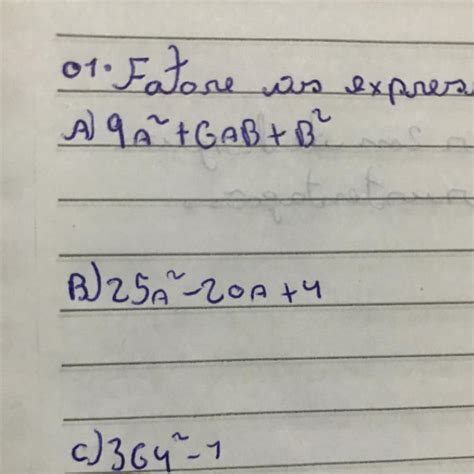 01. Fatore as expres
A) 9A²+6AB+B²
B) 25A²-20A+4
C) 36y²-1